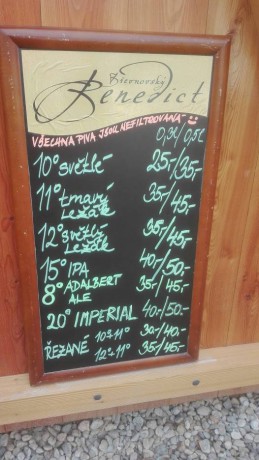 Břevnovský
Benedict
VŠECHNA PIVA JSOU NEFILTROVANÁ
0,3l/0,5l
10° světlé 25,-/35,-
11° tmavý 35/45,-
Ležák
12° světlý 35/45,-
Ležák
15° IPA 40,-/50,-
8° ADALBERT 35/45,-
ALE
20° IMPERIAL 40,-/50,-
ŘEZANÉ 10+11° 30,-/40,-
12+11° 35/45,-